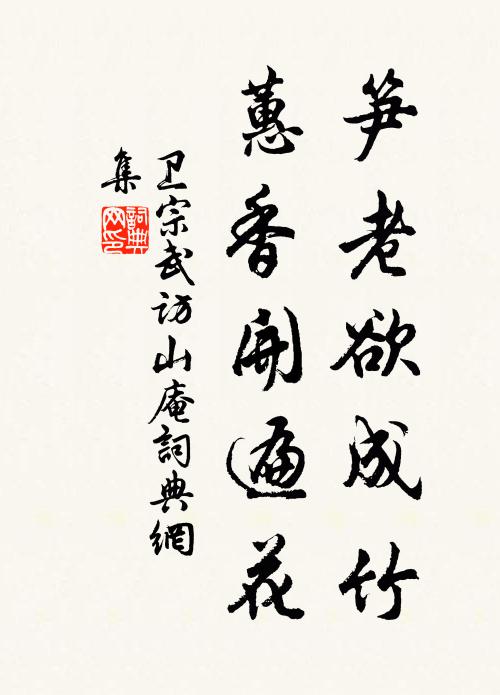 笋老欲成竹
蕙香開遍花
卫宗武访山庵詞典網
集
詞典网印